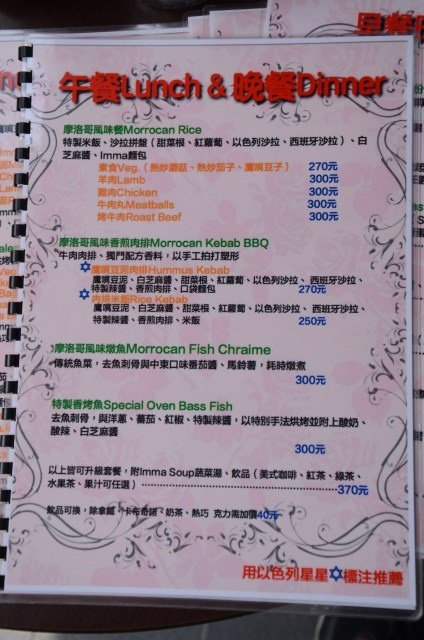 午餐Lunch & 晚餐Dinner
摩洛哥風味餐Morrocan Rice
特製米飯、沙拉拼盤（甜菜根、紅蘿蔔、以色列沙拉、西班牙沙拉）、白
芝麻醬、Imma麵包
素食Veg.（熱炒蘑菇、熱炒茄子、鷹嘴豆子） 270元
羊肉Lamb 300元
雞肉Chicken 300元
牛肉丸Meatballs 300元
烤牛肉Roast Beef 300元
摩洛哥風味香煎肉排Morrocan Kebab BBQ
牛肉肉排、獨門配方香料，以手工拍打塑形
✡鷹嘴豆泥肉排Hummus Kebab
鷹嘴豆泥、白芝麻醬、甜菜根、紅蘿蔔、以色列沙拉、西班牙沙拉、
特製辣醬、香煎肉排、口袋麵包 270元
✡肉排米飯Rice Kebab
鷹嘴豆泥、白芝麻醬、甜菜根、紅蘿蔔、以色列沙拉、西班牙沙拉、
特製辣醬、香煎肉排、米飯 250元
摩洛哥風味燉魚Morrocan Fish Chraime
傳統魚菜，去魚刺骨與中東口味番茄醬、馬鈴薯，耗時燉煮
300元
特製香烤魚Special Oven Bass Fish
去魚刺骨，與洋蔥、蕃茄、紅椒、特製辣醬，以特別手法烘烤並附上酸奶、
酸辣、白芝麻醬
300元
以上皆可升級套餐，附Imma Soup蔬菜湯、飲品（美式咖啡、紅茶、綠茶、
水果茶、果汁可任選）......370元
飲品可換，除拿鐵、卡布奇諾、奶茶、熱巧 克力需加價40元
用以色列星星✡標注推薦